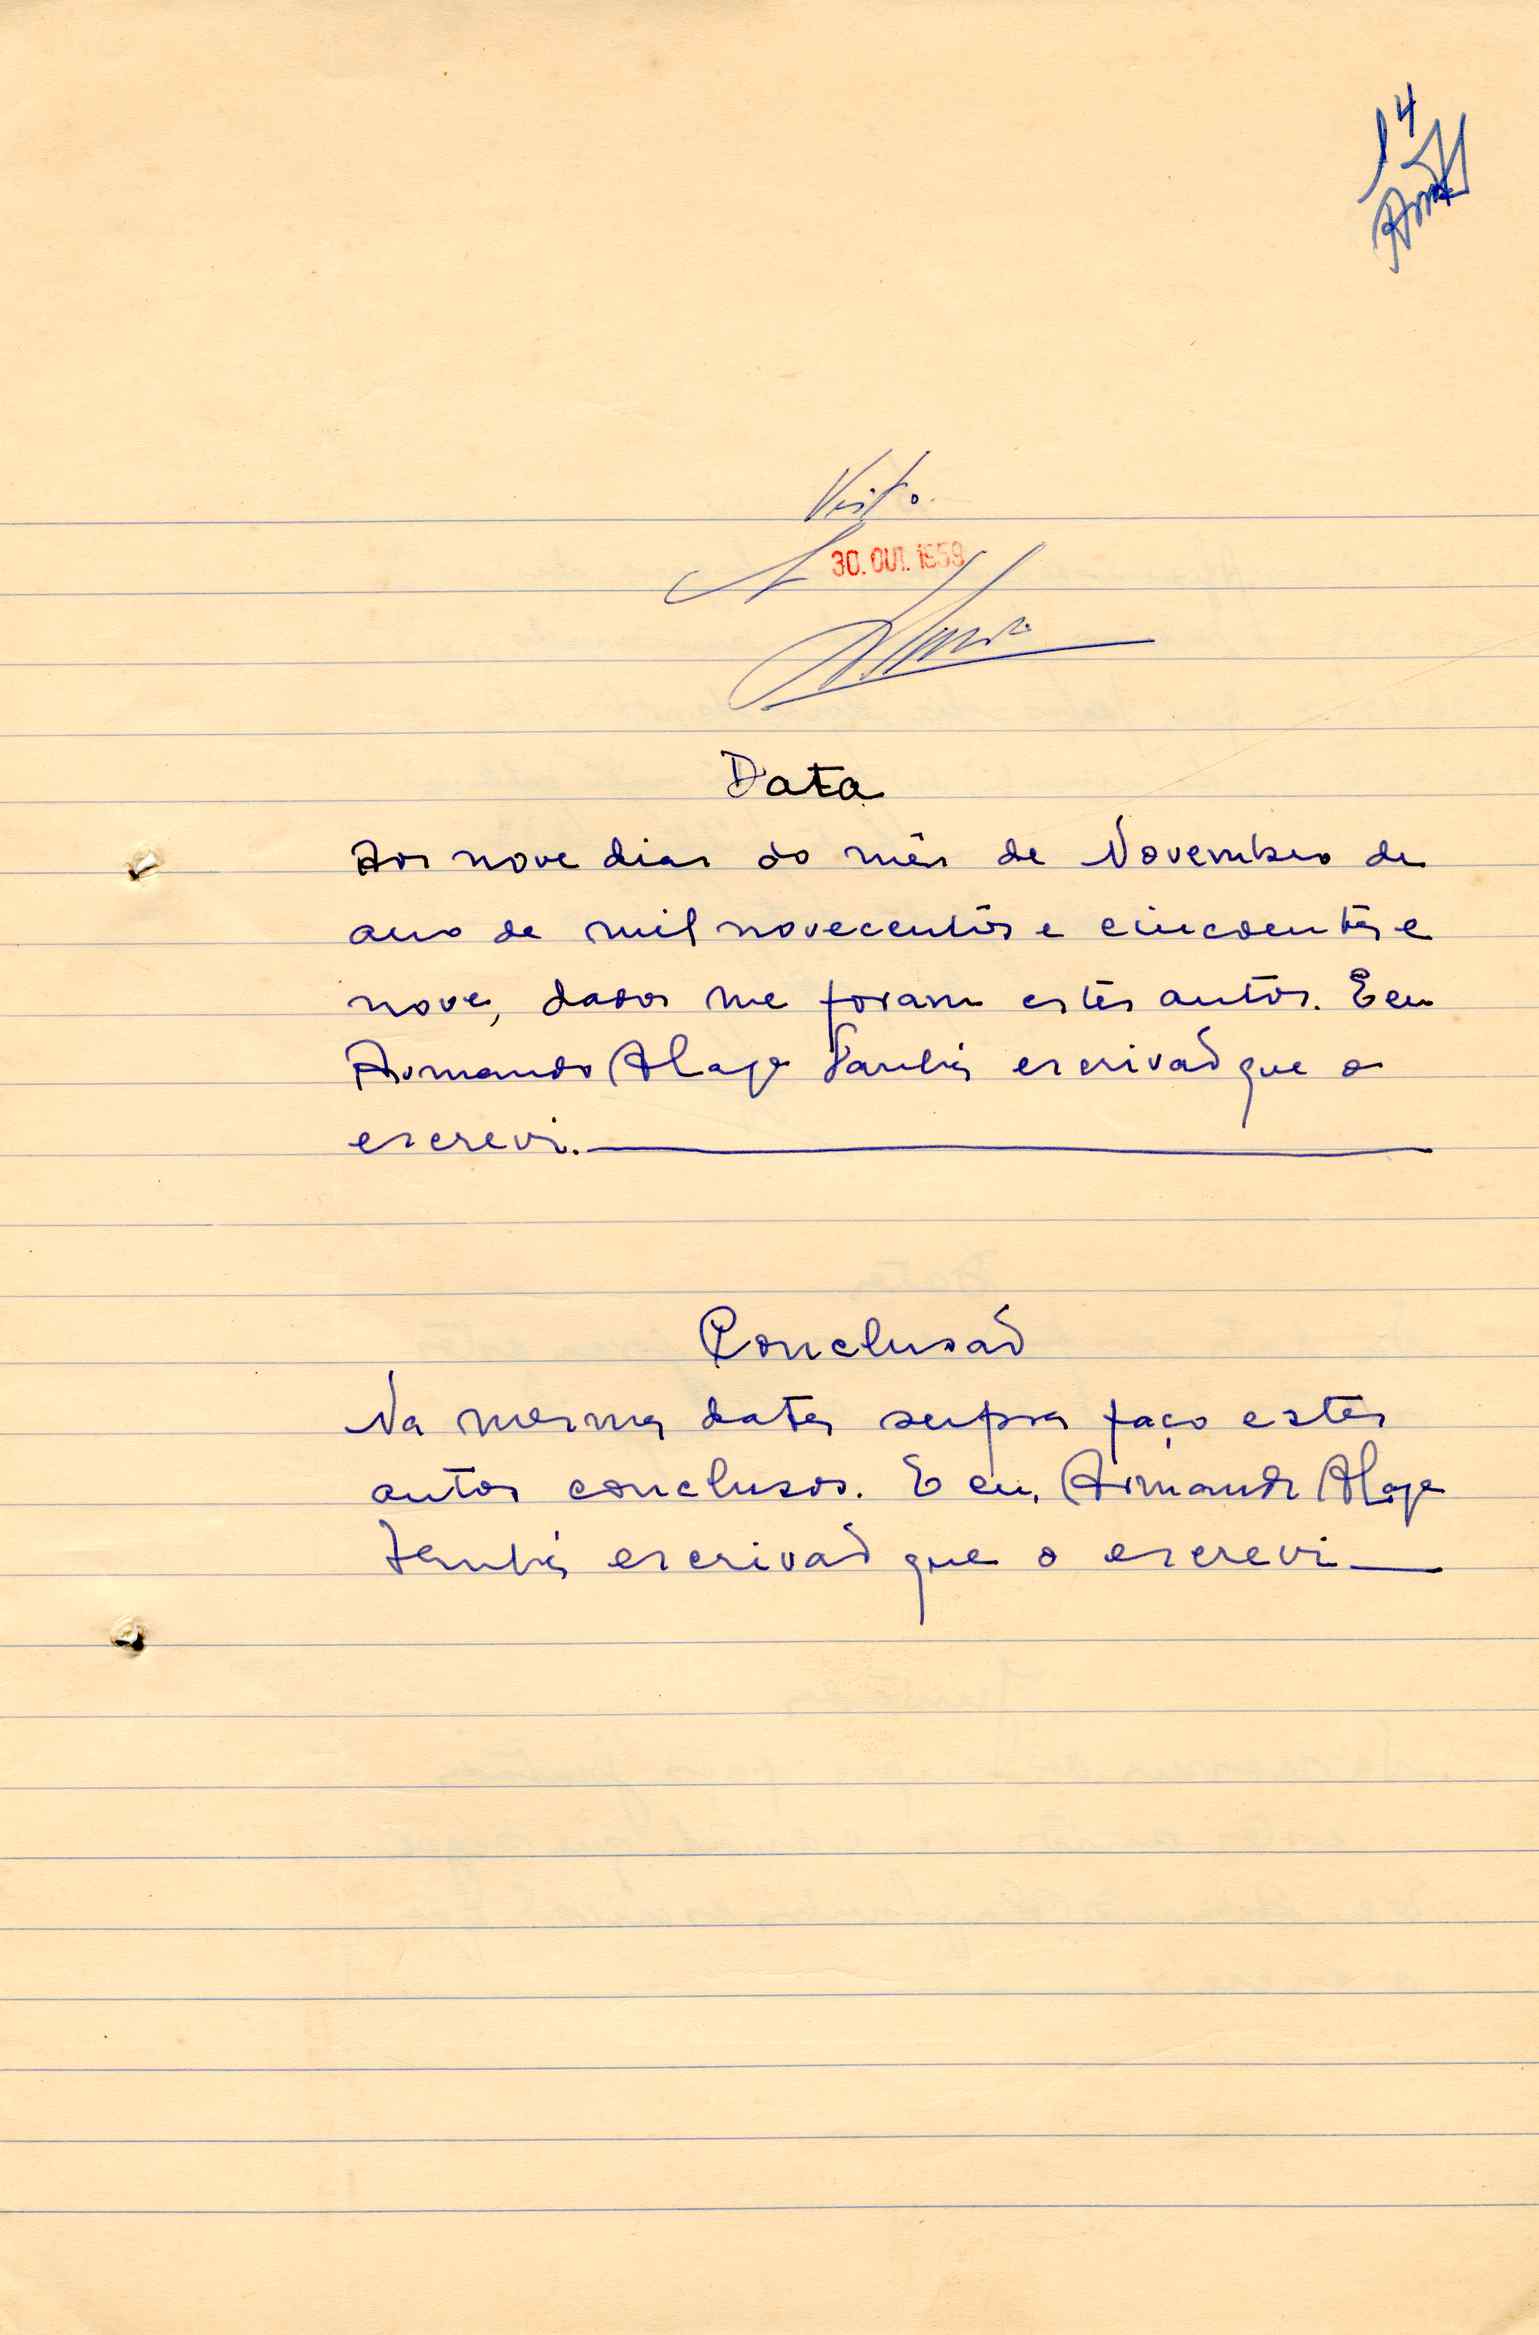 14
Visto.
30. OUT. 1959
Data
Aos nove dias do mês de Novembro de
ano de mil novecentos e cincoenta e
nove, dados me foram estes autos. E eu
Armando escrivão que o
escrevi.
Conclusão
Na mesma data supra faço estes
autos conclusos. E eu, Armando
escrivão que o escrevi